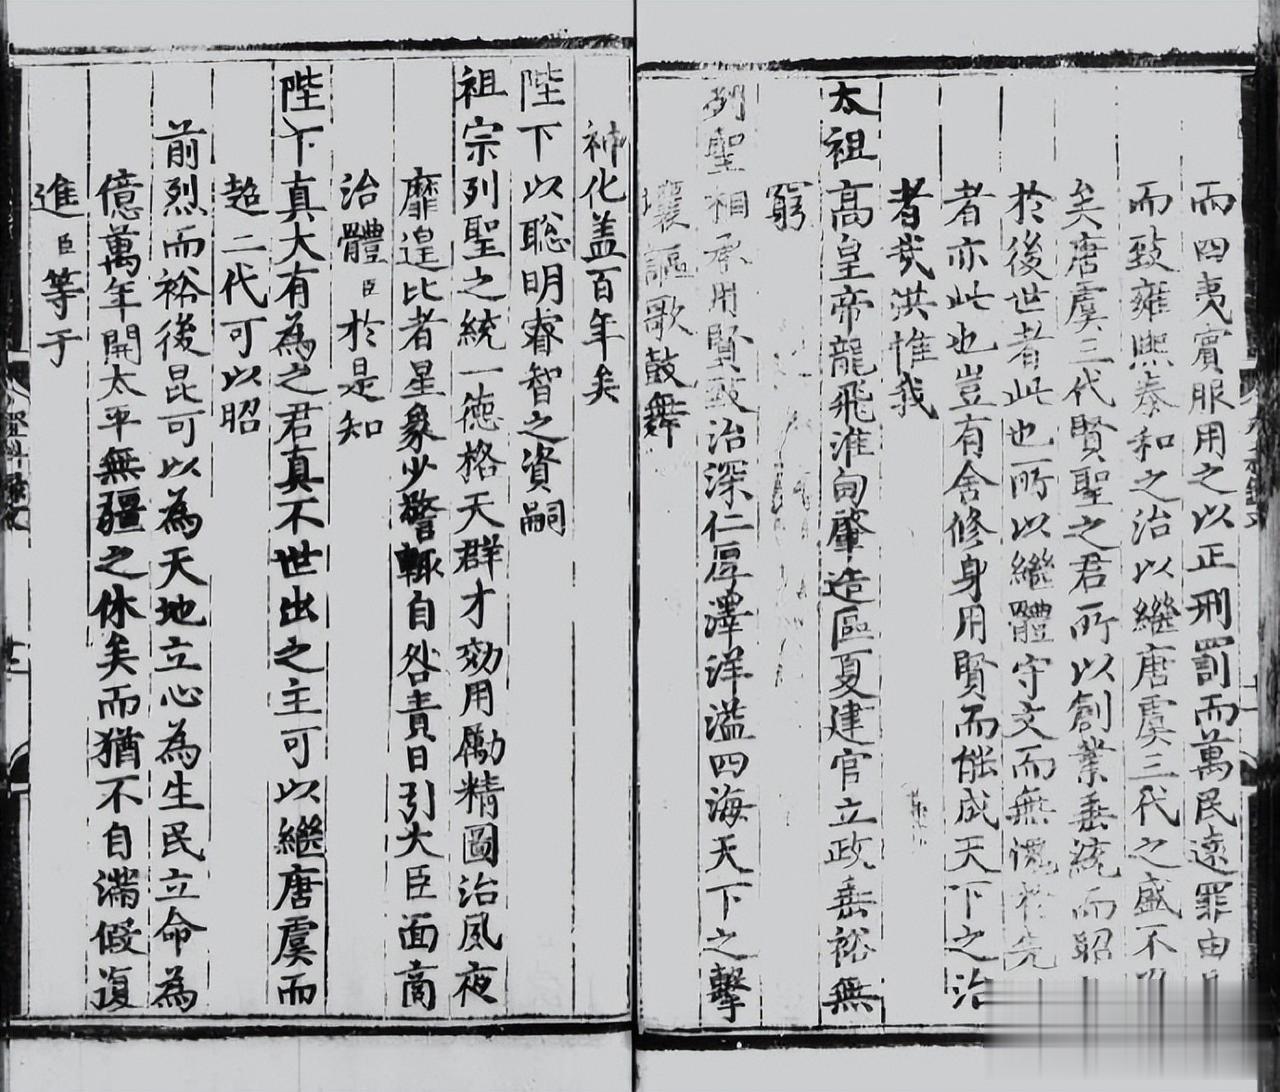 而四夷賓服用之以正刑罰而萬民遠罪由
而致雍熙泰和之治以繼唐虞三代之盛不
矣唐虞三代賢聖之君所以創業垂統而昭
於後世者此也所以繼體守文而無愧於先
者亦此也豈有舍修身用賢而能成天下之治
者哉洪惟我
太祖高皇帝龍飛淮甸肇造區夏建官立政垂裕無
窮
列聖相承用賢致治深仁厚澤洋溢四海天下之擊
壤謳歌鼓舞
神化蓋百年矣
陛下以聡明睿智之資嗣
祖宗列聖之統一德格天群才効用勵精圖治夙夜
靡遑比者星象少警輒自咎責日引大臣面商
治體臣於是知
陛下真大有為之君真不世出之主可以繼唐虞而
超二代可以昭
前烈而裕後昆可以為天地立心為生民立命為
億萬年開太平無疆之休矣而猶不自滿假復
進臣等于